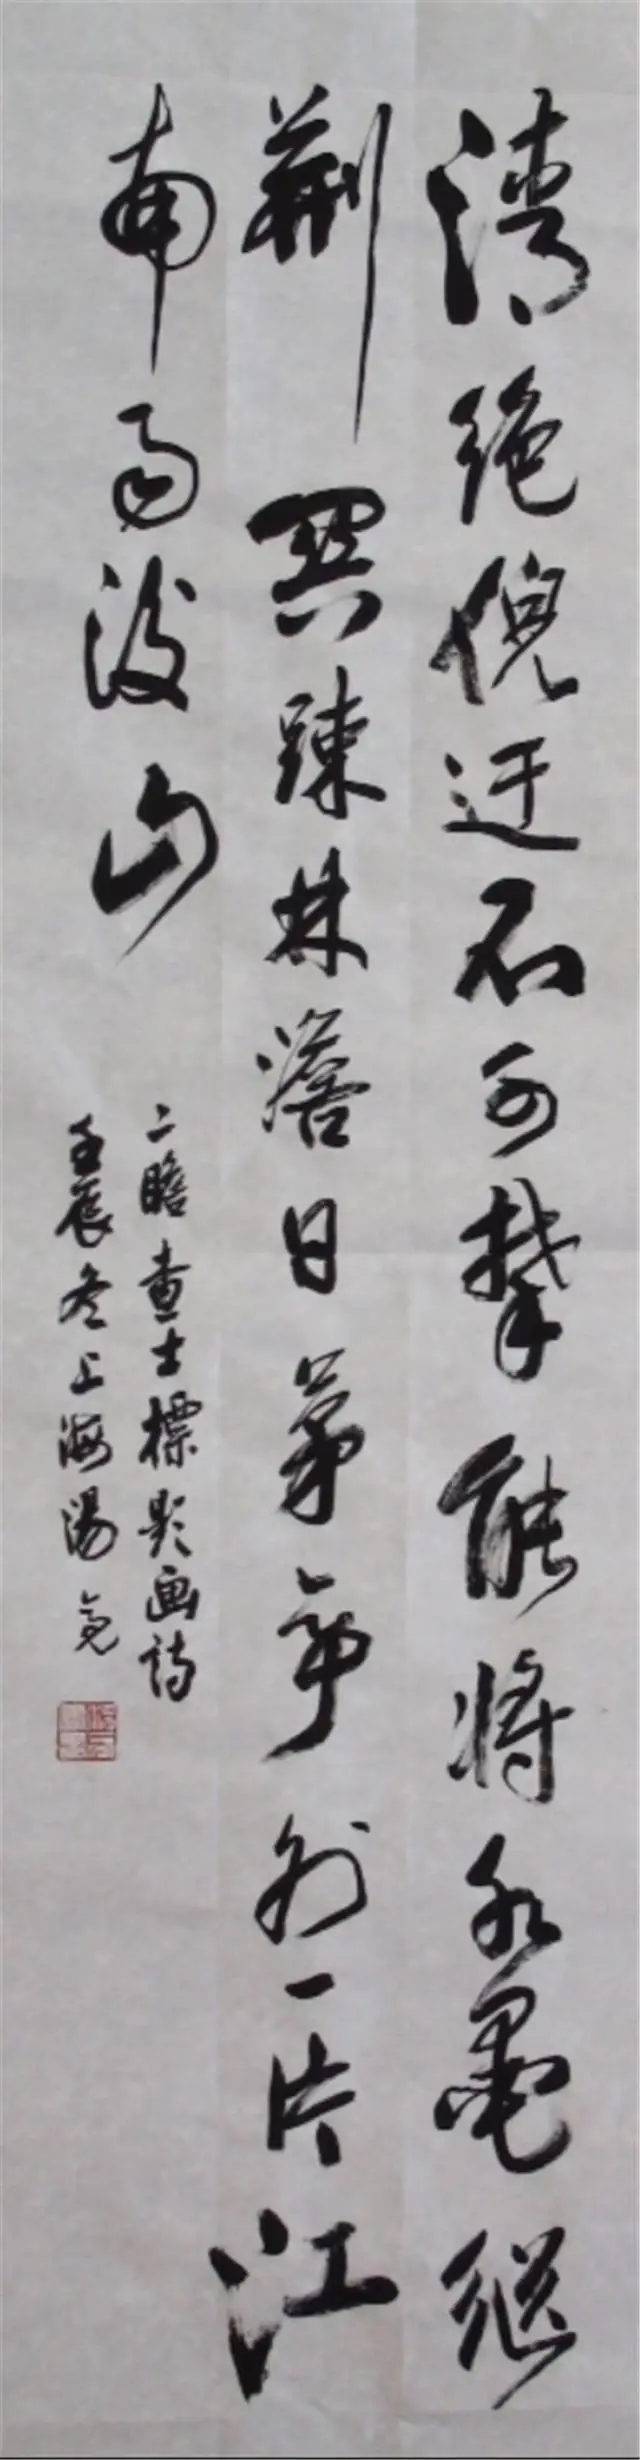 清绝倪迂不可攀能将水墨继
荆关疎林澹日茅亭外一片江
南雨后山
二瞻查士标题画诗
壬辰冬上海汤亮